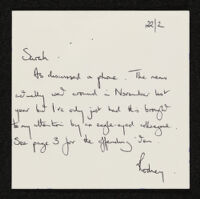 22/2
Sarah.
As discussed a phone. The memo
actually went around in November last
year but I've only just had this brought
to my attention by an eagle-eyed colleague.
See page 3 for the offending
Rodney